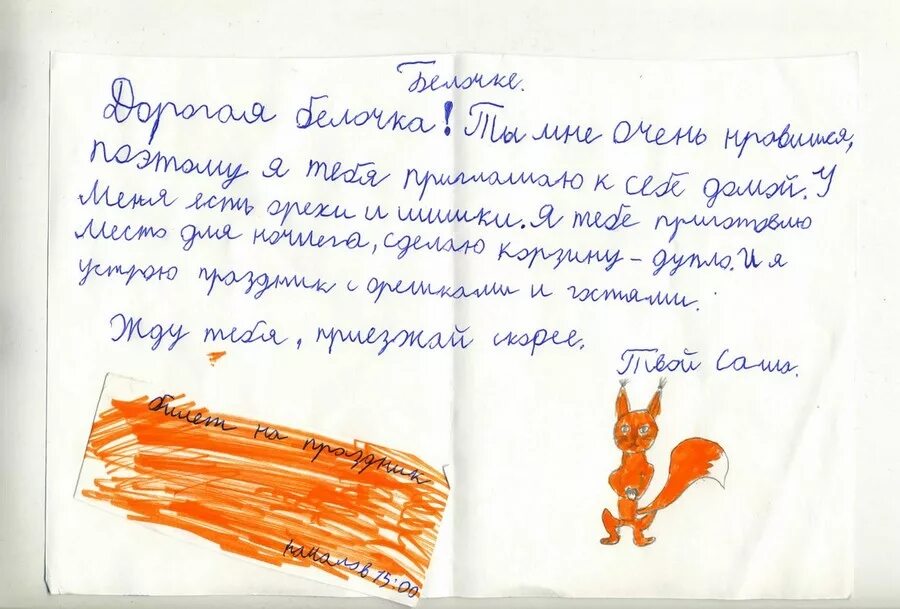 Белочке.
Дорогая белочка! Ты мне очень нравишся,
поэтому я тебя приглашаю к себе домой. У
меня есть орехи и шишки. Я тебе приготовлю
место для ночлега, сделаю корзину - дупло. И я
устрою праздник с орешками и гостями.
Жду тебя, приезжай скорее.
Твой Саша.
билет на праздник
начало в 15:00